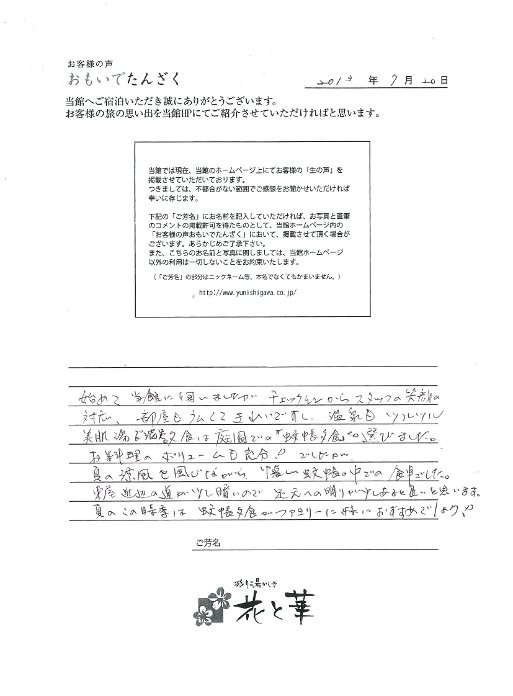 お客様の声
おもいでたんざく
2013 年 7 月 20 日
当館へご宿泊いただき誠にありがとうございます。
お客様の旅の思い出を当館HPにてご紹介させていただければと思います。
当館では現在、当館のホームページ上にてお客様の「生の声」を
掲載させていただいております。
つきましては、不都合がない範囲でご感想をお聞かせいただければ
幸いに存じます。
下記の「ご芳名」にお名前を記入していただければ、お写真と直筆
のコメントの掲載許可を得たものとして、当館ホームページ内の
「お客様の声おもいでたんざく」において、掲載させて頂く場合が
ございます。あらかじめご了承下さい。
また、こちらのお名前と写真に関しましては、当館ホームページ
以外の利用は一切しないことをお約束いたします。
(「ご芳名」の部分はニックネーム等、本名でなくてもかまいません。)
http://www.yunishigawa.co.jp/
始めて当館に伺いましたが チェックインからスタッフの笑顔の
対応、部屋も広くてきれいですし、温泉もツルツル
美肌湯で 夕食は庭園での"蚊帳夕食"を選びました。
お料理のボリュームも充分!! でしたが
夏の涼風を感じながら 蚊帳の中での食事でした。
道が少し暗いので 足元への明りが少しあると良いと思います。
夏のこの時季は 蚊帳夕食がファミリーに特におすすめです!
ご芳名
彩り湯かしき
花と華